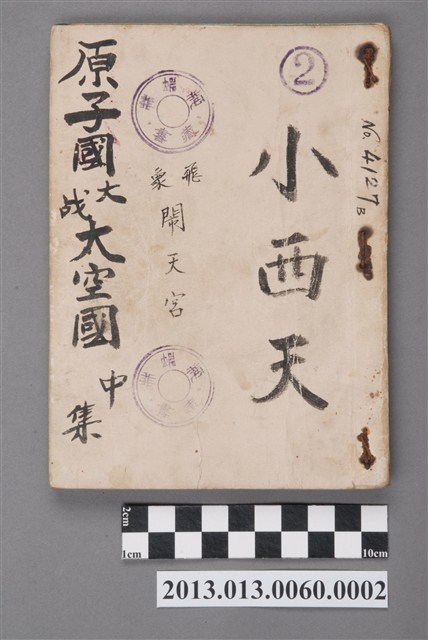 2
No. 4127B
小西天
飛象
鬧天宮
原子國大战太空國
中集
2cm
1cm
10cm
2013.013.0060.0002